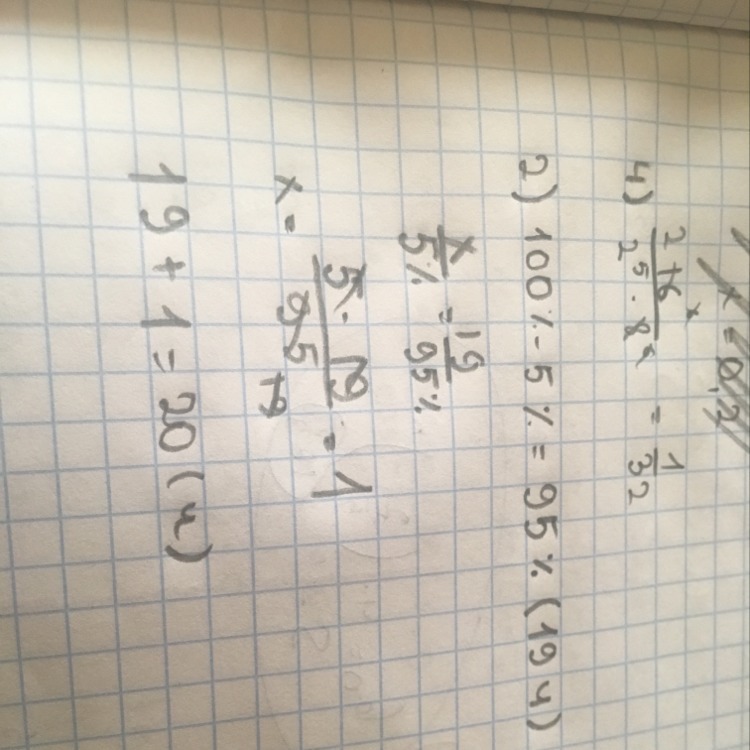 x = 0,2
4) 2 16 / 2⁵ · 8 = 1/32
2) 100% - 5% = 95% (19 ч)
x/5% = 19/95%
x = 5 · 19 / 95 = 1
19
19 + 1 = 20 (ч)